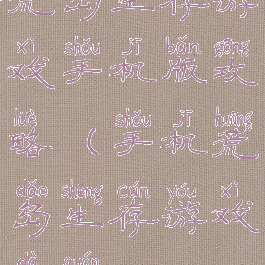 荒岛生存游
xì shǒu jī bǎn gōng
戏手机版攻
lüè shǒu jī huāng
略（手机荒
dǎo shēng cún yóu xì
岛生存游戏